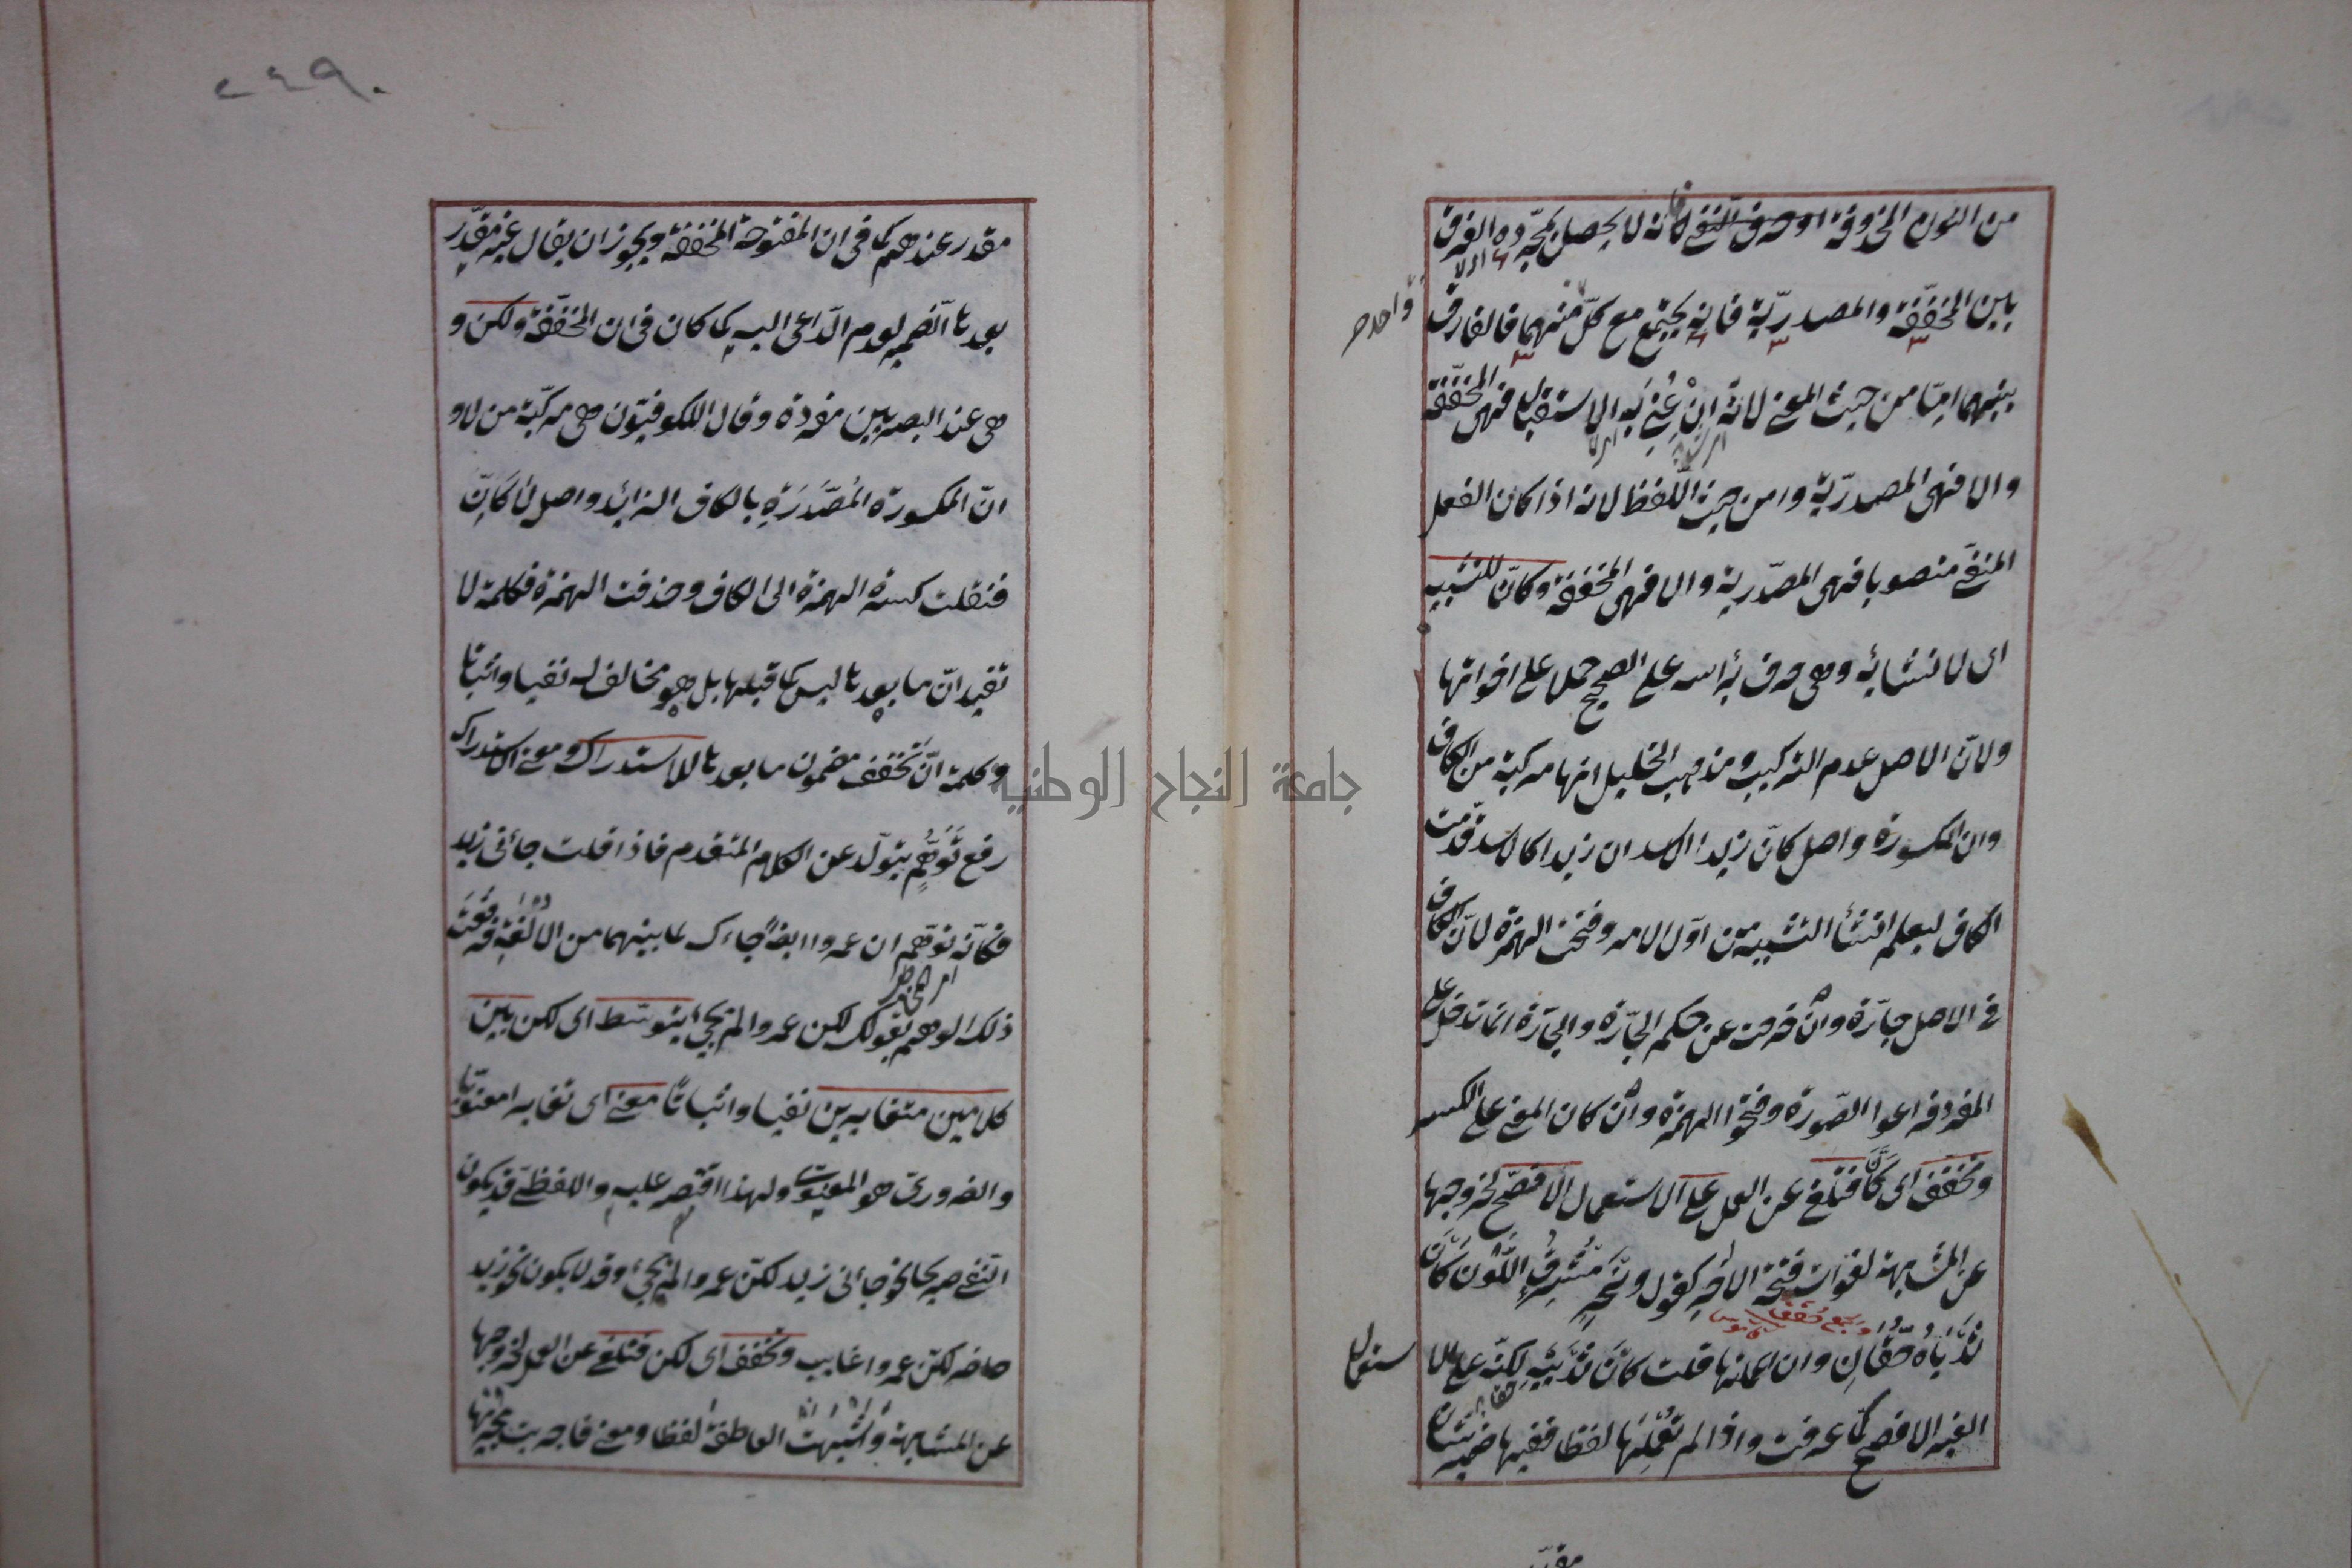 من النون المحذوفة او حرف النفى فانه لا يحصل بمجرده الفرق
بين المخففة والمصدرية فانه يجتمع مع كل منهما فالفارق
بينهما اما من حيث المعنى لانه ان عنى به الاستقبال فهى المخففة
والا فهى المصدرية وامن حيث اللفظ لانه اذا كان الفعل
المنفى منصوبا فهى المصدرية والا فهى المخففة وكان للتشبيه
اى لانشائه وهى حرف برأسه على الصحيح حملا على اخواتها
ولان الاصل عدم التركيب ومذهب الخليل انها مركبة من الكاف
وان المكسورة واصل كان زيدا الاسد ان زيدا كالاسد قدمت
الكاف ليعلم انشأ التشبيه من اول الامر وفتحت الهمزة لان الكاف
فى الاصل جارة وان خرجت عن حكم الجارة والجارة انما تدخل على
المفرد فراعوا الصورة وفتحوا الهمزة وان كان المعنى على الكسر
وتخفف اى كان فتلغى عن العمل على الاستعمال الافصح لخروجها
عن المشابهة لفوات فتحة الاخر كقول ونحر مشرق اللون كان
ثدياه حقان وان اعملتها قلت كان ثدييه لكنه على الا
ستعمال
الغير الافصح كما عرفت واذا لم تعملها لفظا ففيها ضمير شان
٢٤٩
مقدر عندهم كما فى ان المفتوحة المخففة ويجوز ان يقال غير مقدر
بعدها الضمير لعدم الداعى اليه كما كان فى ان المخففة ولكن و
هى عند البصريين مفردة وقال الكوفيون هى مركبة من لا و
ان المكسورة المصدرة بالكاف الزائد واصل لاكان
فنقلت كسرة الهمزة الى الكاف وحذفت الهمزة فكلمة لا
تفيد ان ما بعدها ليس كما قبلها بل هو مخالف له نفيا واثباتا
وكلمة ان تحقق مضمون ما بعدها للاستدراك ومعنى الاستدراك
رفع توهم يتولد عن الكلام المتقدم فاذا قلت جائنى زيد
فكانه توهم ان عمروا ايضا جاءك لما بينهما من الالفة فرفعت
ذلك الوهم بقولك لكن عمروا لم يجئ يتوسط اى لكن بين
كلامين متغايرين نفيا واثباتا معنى اى تغايرا معنويا
والضرورى هو المعنوى ولهذا اقتصر عليه واللفظى قد يكون
النفى صريحا نحو جائنى زيد لكن عمروا لم يجئ وقد لا يكون نحو زيد
حاضر لكن عمروا غايب وتخفف اى لكن فتلغى عن العمل لخروجها
عن المشابهة واشبهت العاطفة لفظا ومعنى فاجريت مجريها
جامعة النجاح الوطنية